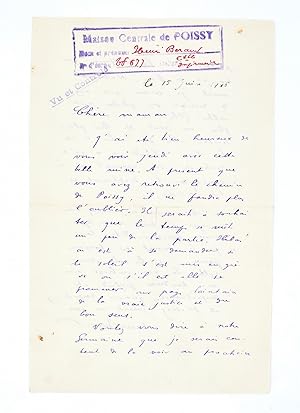 Maison Centrale de POISSY
Nom et prénom: Henri Béraud
N° d'écrou
Vu et Contrôlé
le 15 Juin
Chère maman
J'ai été bien heureux de
vous voir jeudi avec cette
belle mine. A présent que
vous avez retrouvé le chemin
de Poissy, il ne faudra plus
l'oublier. Il serait à souhai-
ter que le temps se mît
un peu de la partie. Hélas!
on est à se demander si
le soleil s'est mis en grè-
ve ou s'il est allé se
promener aux pays lointains
de la vraie justice et du
bon sens.
Voulez vous dire à notre
Germaine que je serai con-
tent de la voir au prochain